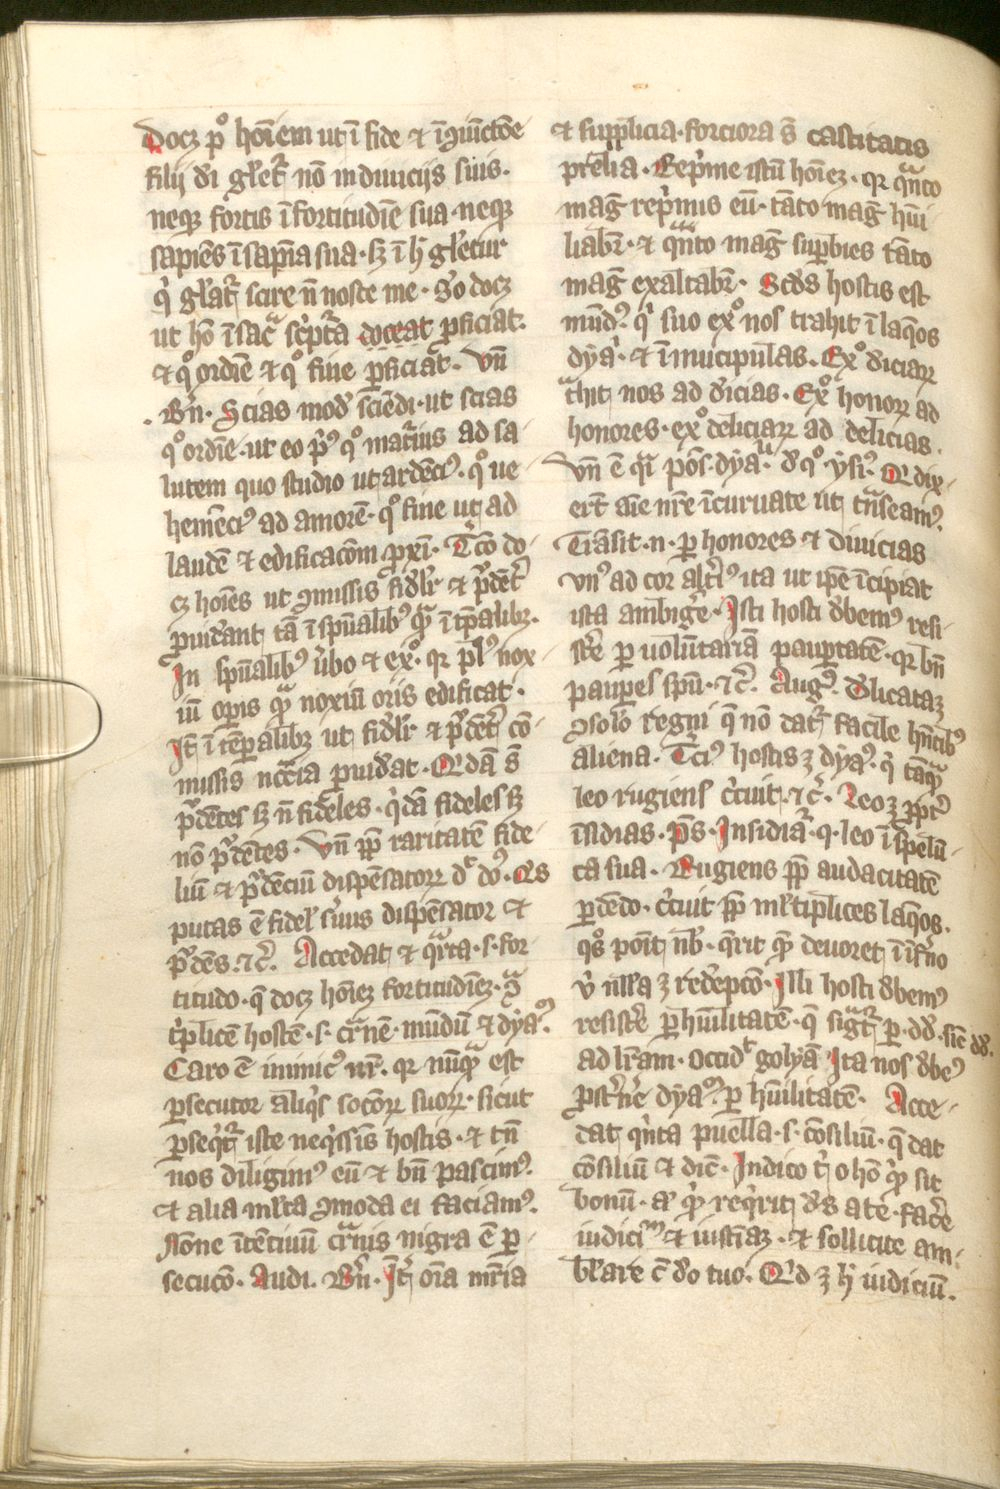 Docꝫ pͦ hoı̄em ut ı̄ fide et ı̄ ꝯiūctōe
filij dı̄ glet᷑ nō in diuicijs suis.
neqꝫ fortis ı̄ fortitudıē sua neqꝫ
sapiēs ı̄ sapīa sua. sꝫ ı̄ h̄ gletur
qͥ glat᷑ scire n̄ nosce me. Sͦo docꝫ
ut hō ı̄ sacͣ scͥptͣa doceat ꝓficiat.
et qͦ ordīe et qͦ fine ꝓficiat. Vn̄
Bern̄. Scias modū scīēdi. ut scias
qͦ ordīe. ut eo pͥꝰ qͦ matͥius ad sa
lutem quo studio ut ardēciꝰ. qͦ ue
hemēciꝰ ad amorē. qͦ fine ut ad
laudē et edificacōm ꝓxı̄. Tͥcō do
cꝫ hoı̄es ut ꝯmissis fidelr et pͥdēt᷑
ꝓuideant tā ı̄ spūalibꝰ qͣ ı̄ tꝑalibꝫ.
In spūalibꝰ ūbo et exͦ. qꝛ plꝰ nox
iū oꝑis qͣ noxiū oris edificat.
It̄ ı̄ tēꝑalibꝫ ut fidelr et pͥdēt᷑ cō
missis nccͥia ꝓuideat. Qͥdā s̄
pͥdētes sꝫ n̄ fideles. qͥdā fideles sꝫ
nō pͥdētes. Vn̄ ꝓp̄ raritatē fide
liū et pͥdēciū dispēsatorꝝ dͨ dn̄s. Qͥs
putas ē fidel sͥuus dispēsator et
pͥdēs. ⁊c̄. Accedat et qͣrta. s. for
titudo. q̄ docꝫ hoı̄eꝫ fortitudıēꝫ
tͥplicē hostē. s. cͣrnē. mūdū et dyaꝰ.
Caro ē inimicꝰ nr̄. qꝛ nūqͣ est
ꝑsecutor aliqͥs socōꝝ suoꝝ. sicut
ꝑseqͥt᷑ iste neqͥssīs hostis. et tn̄
nos diligimꝰ eū et bn̄ pascimꝰ.
et alia ml̄ta ꝯmoda ei faciamꝰ.
Nōne ı̄tēciuū cͣrnis nigra ē ꝑ
secucō. Audi. Bern̄. It̄ oı̄a mr̄ia
et supplicia. forciora s̄ castitatis
prelia. Repͥme istū hoı̄eꝫ. qꝛ qͣnto
mag̅ repͥmis eū. tāto mag̅ hūi
liabr᷑. et qͣnto mag̅ suꝑbies tāto
mag̅ exaltabr᷑. Scds hostis est
mūdꝰ. qͥ suo exͦ nos trahit ı̄ laqͦs
dyaͥ. et ı̄ muscipulas. Exͦ diciaꝝ
tͣhit nos ad dicias. Exͦ honoꝝ ad
honores. exͦ deliciaꝝ ad delicias.
Vn̄ ē qͣi pōs. dyaͥ. d̄ qͦ. ysͥ. Qͥ dix
ert aīe nr̄e ı̄curuare ut tn̄seamꝰ.
Trāsit .n. ꝑ honores et diuicias
vnꝰ ad cor altͥiꝰ ita ut ip̄e ı̄cipiat
ista ambigͤe. Isti hosti debemꝰ resi
stͤe ꝑ uolūtariā pauꝑtatē. qꝛ bn̄
pauꝑes spū. ⁊c̄. Augꝰ. Delicataꝫ
ꝯsolō regni q̄ nō dat᷑ facile hn̄tibꝰ
aliena. Tͥciꝰ hostis ꝫ dyaꝰ. qͥ tāqͣ
leo rugiens cͥcuit. ⁊c̄. Leo ꝫ ꝓpt᷑
ı̄sidias. ps. Insidiat᷑. q. leo ı̄ spelū
ca sua. Rugiens ꝓp̄ audacitatē
ꝑdēdo. cͥcuit ꝓp̄ ml̄tiplices laqͦs.
qͦs poı̄t nb̄. q̄rit qͥ deuoret ı̄ īfͥno
v̄ nll̄a ꝫ redēpcō. Illi hosti debemꝰ
resistͤe ꝑ hūilitatē. q̄ sigt᷑ ꝑ. dd̄. sic̄ dd̄.
ad lr̄am. occidͭ golyā Ita nos dbeꝰ
ꝓstͥnͤe dyaꝰ. ꝑ hūilitatē. Acce
dat qͥnta puella. s. cōsiliū. q̄ dat
cōsiliū et dic̄. Indico tͥ o hō qͥ sit
bonū. aꝰ qͥ reqͥrit ds̄ a te. facͤe
iudiciͫ et iusticiaꝫ. et sollicite am
bl̄are c̄ deo tuo. Qͥd ꝫ h̄ iudiciū.